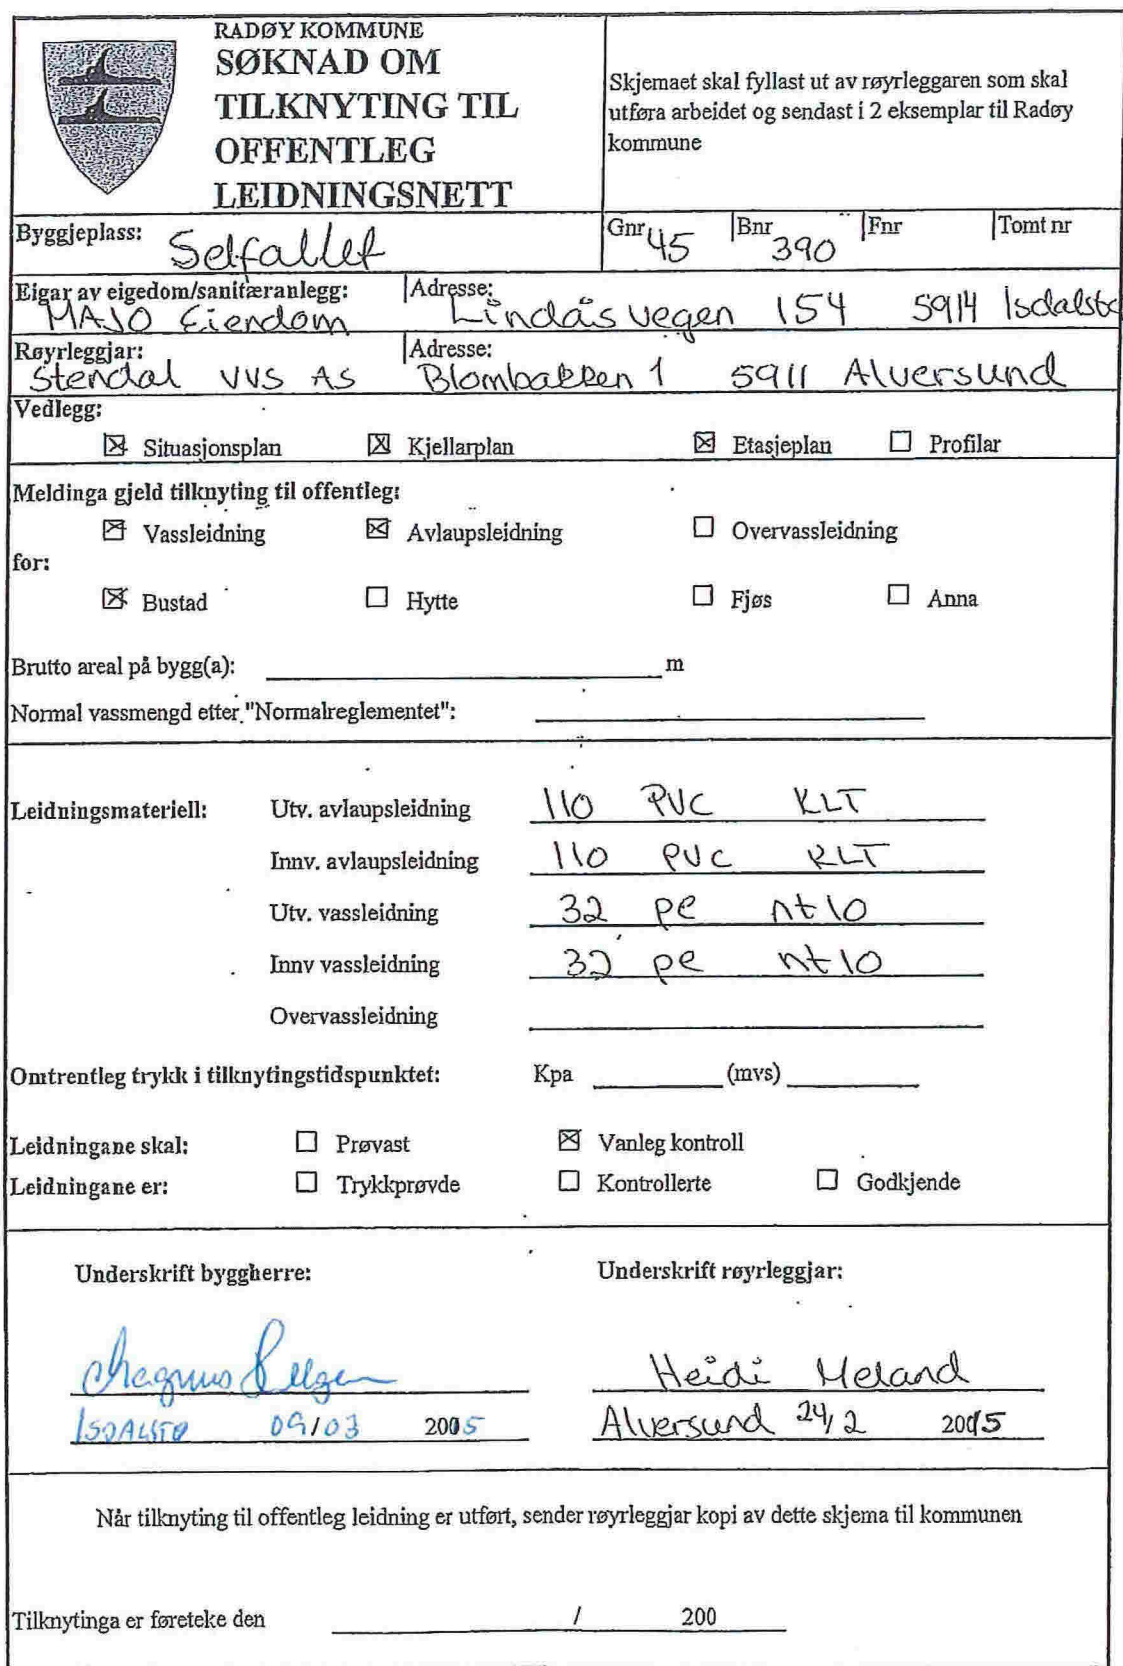 RADØY KOMMUNE
SØKNAD OM
TILKNYTING TIL
OFFENTLEG
LEIDNINGSNETT
Skjemaet skal fyllast ut av røyrleggaren som skal
utføra arbeidet og sendast i 2 eksemplar til Radøy
kommune
Byggjeplass: Selfallet
Gnr 45 Bnr 390 Fnr Tomt nr
Eigar av eigedom/sanitæranlegg: Adresse:
MAJO Eiendom Lindåsvegen 154 5914 Isdalstø
Røyrleggjar: Adresse:
Stendal VVS AS Blombakken 1 5911 Alversund
Vedlegg:
☒ Situasjonsplan ☒ Kjellarplan ☒ Etasjeplan ☐ Profilar
Meldinga gjeld tilknyting til offentleg:
☒ Vassleidning ☒ Avlaupsleidning ☐ Overvassleidning
for:
☒ Bustad ☐ Hytte ☐ Fjøs ☐ Anna
Brutto areal på bygg(a): m
Normal vassmengd etter "Normalreglementet":
Leidningsmateriell: Utv. avlaupsleidning 110 PVC KLT
Innv. avlaupsleidning 110 PVC KLT
Utv. vassleidning 32 pe nt10
Innv vassleidning 32 pe nt10
Overvassleidning
Omtrentleg trykk i tilknytingstidspunktet: Kpa (mvs)
Leidningane skal: ☐ Prøvast ☒ Vanleg kontroll
Leidningane er: ☐ Trykkprøvde ☐ Kontrollerte ☐ Godkjende
Underskrift byggherre: Underskrift røyrleggjar:
Magnus Heidi Meland
ISDALSTØ 09/03 2005 Alversund 24/2 2015
Når tilknyting til offentleg leidning er utført, sender røyrleggjar kopi av dette skjema til kommunen
Tilknytinga er føreteke den / 200